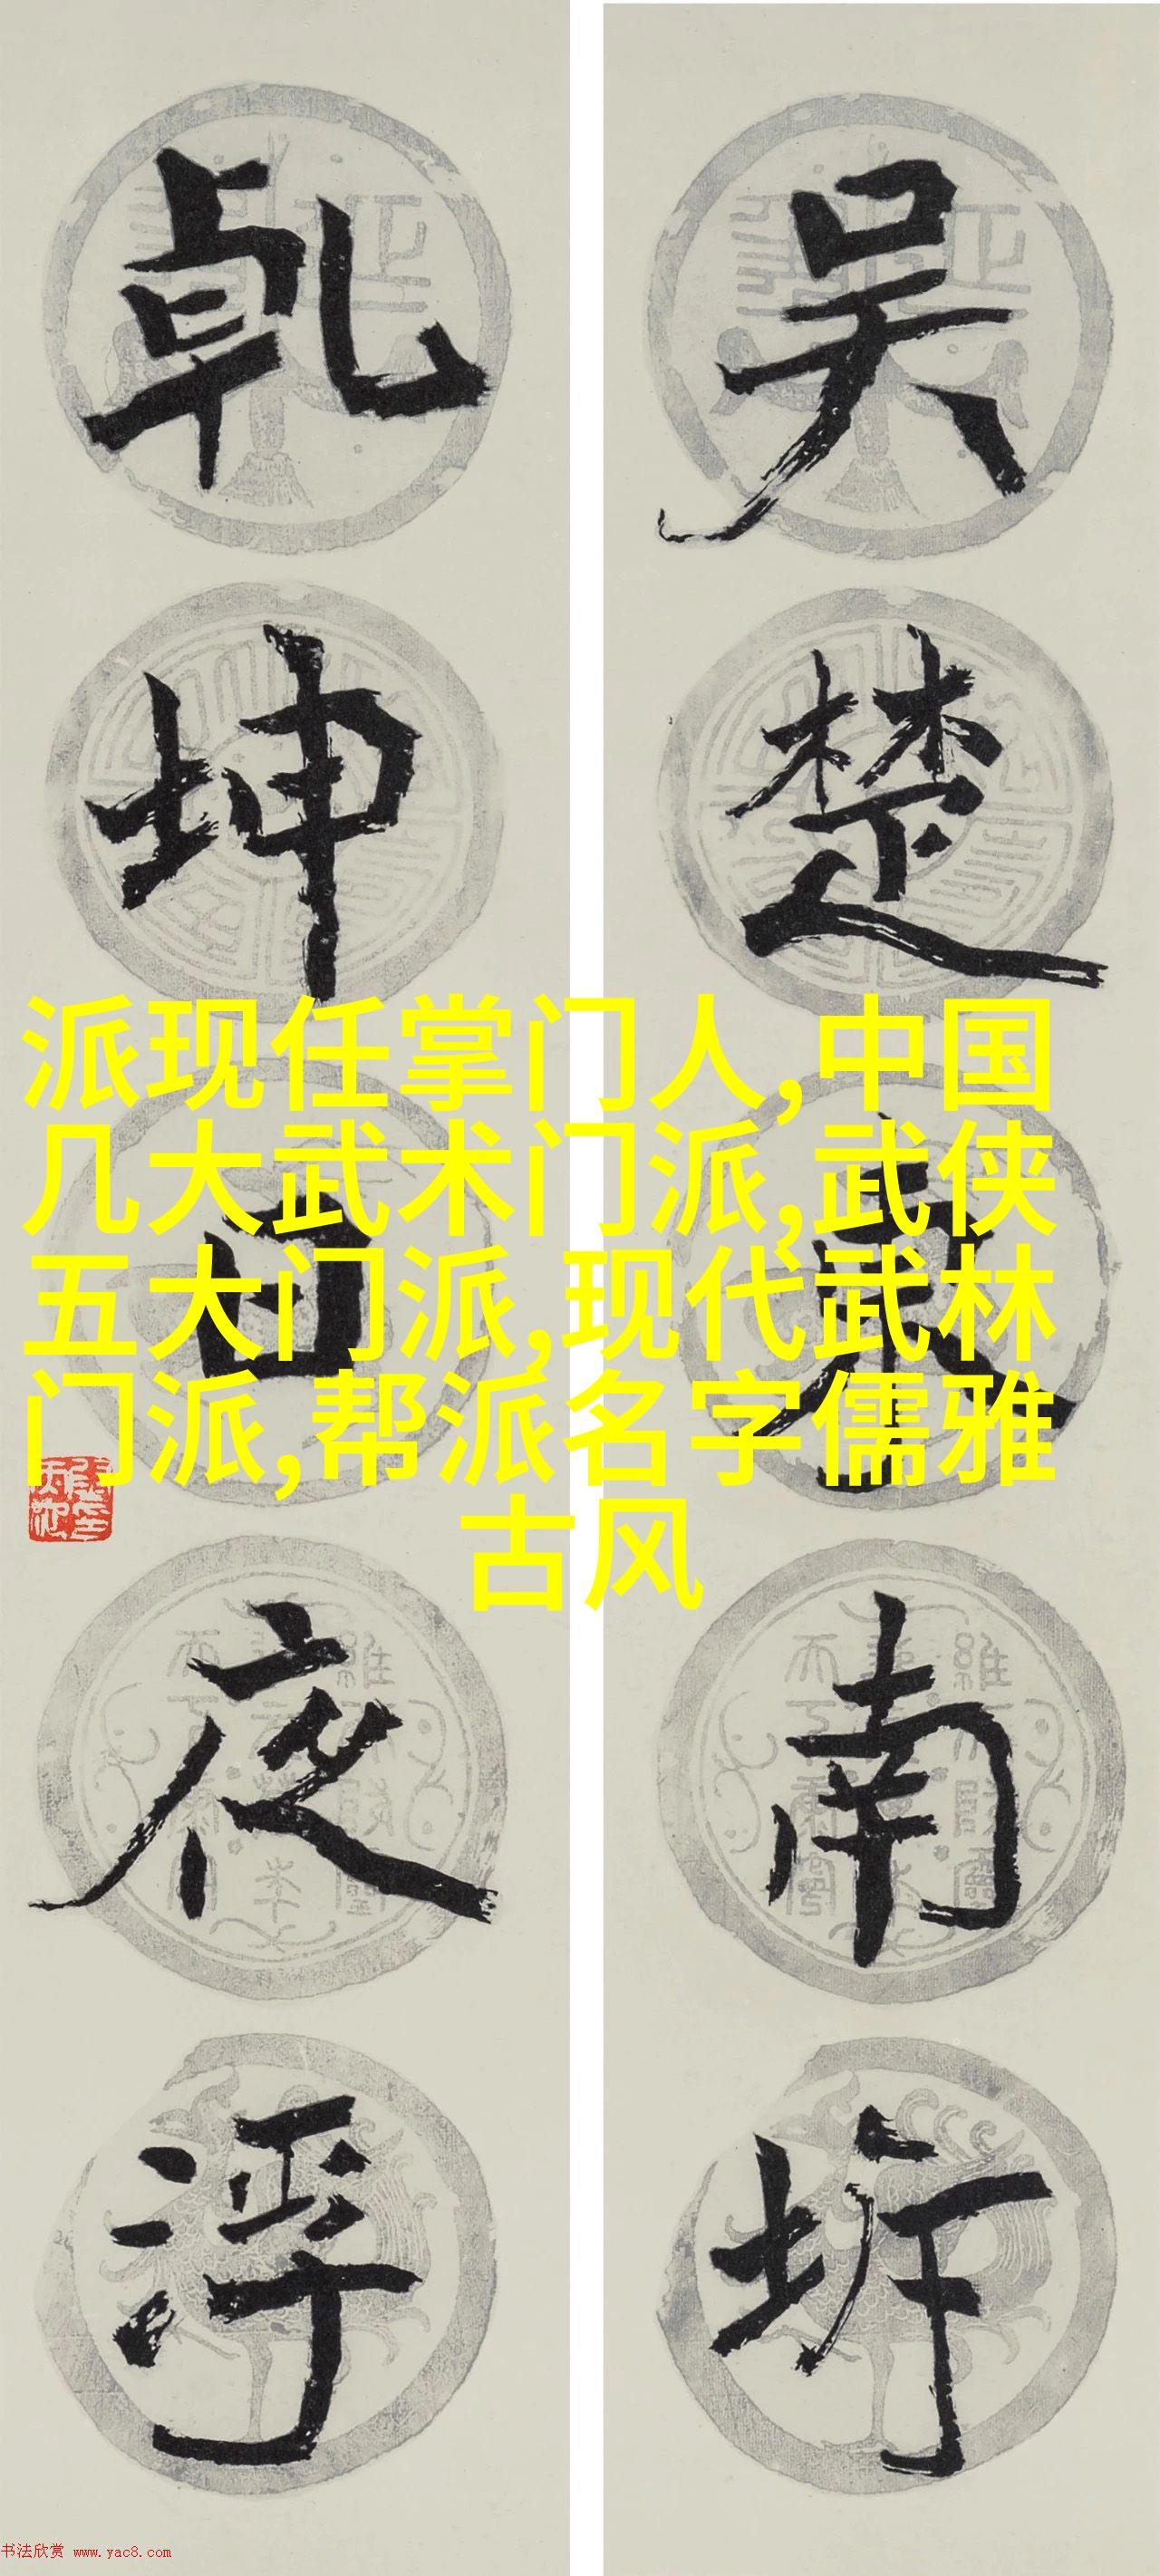 吴楚东南坼
乾坤日夜浮
派现任掌门人,中国
几大武术门派,武侠
五大门派,现代武林
门派,帮派名字儒雅
古风
书法欣赏 www.yac8.com